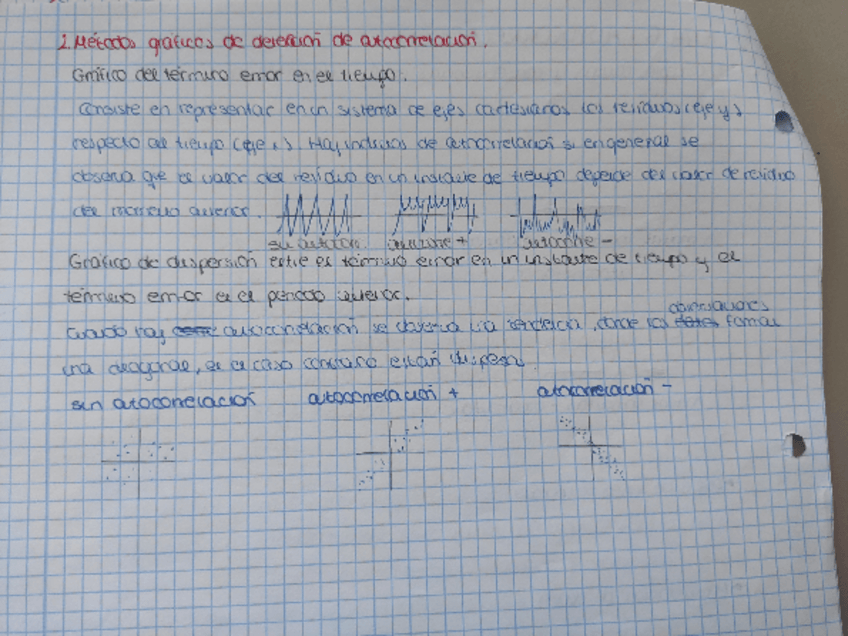 2. Métodos gráficos de detección de autocorrelación.
Gráfico del término error en el tiempo.
Consiste en representar en un sistema de ejes cartesianos los residuos (eje y)
respecto al tiempo (eje x). Hay indicios de autocorrelación si en general se
observa que el valor del residuo en un instante de tiempo depende del valor de residuo
del momento anterior.
sin autocorr. autocorre + autocorre -
Gráfico de dispersión entre el término error en un instante de tiempo y el
término error en el periodo anterior.
observaciones
Cuando hay autocorrelación se observa una tendencia, donde los datos forman
una diagonal, en el caso contrario están dispersos.
sin autocorrelación autocorrelación + autocorrelación -